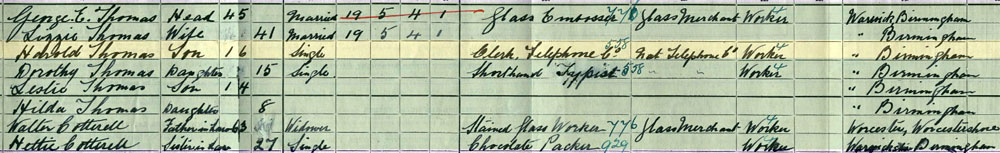 George E. Thomas Head 45 Married 19 5 4 1 Glass Embosser 776 Glass Merchant Worker Warwick Birmingham
Lizzie Thomas Wife 41 Married 19 5 4 1 " Birmingham
Harold Thomas Son 16 Single Clerk, Telephone Co 558 Nat Telephone Co Worker " Birmingham
Dorothy Thomas Daughter 15 Single Shorthand Typist 558 " " Worker " Birmingham
Leslie Thomas Son 14 " Birmingham
Hilda Thomas Daughter 8 " Birmingham
Walter Cotterell Father in law 63 Widower Stained Glass Worker 776 Glass Merchant Worker Worcester, Worcestershire
Hettie Cotterell Sister in law 27 Single Chocolate Packer 929 Worker Birmingham